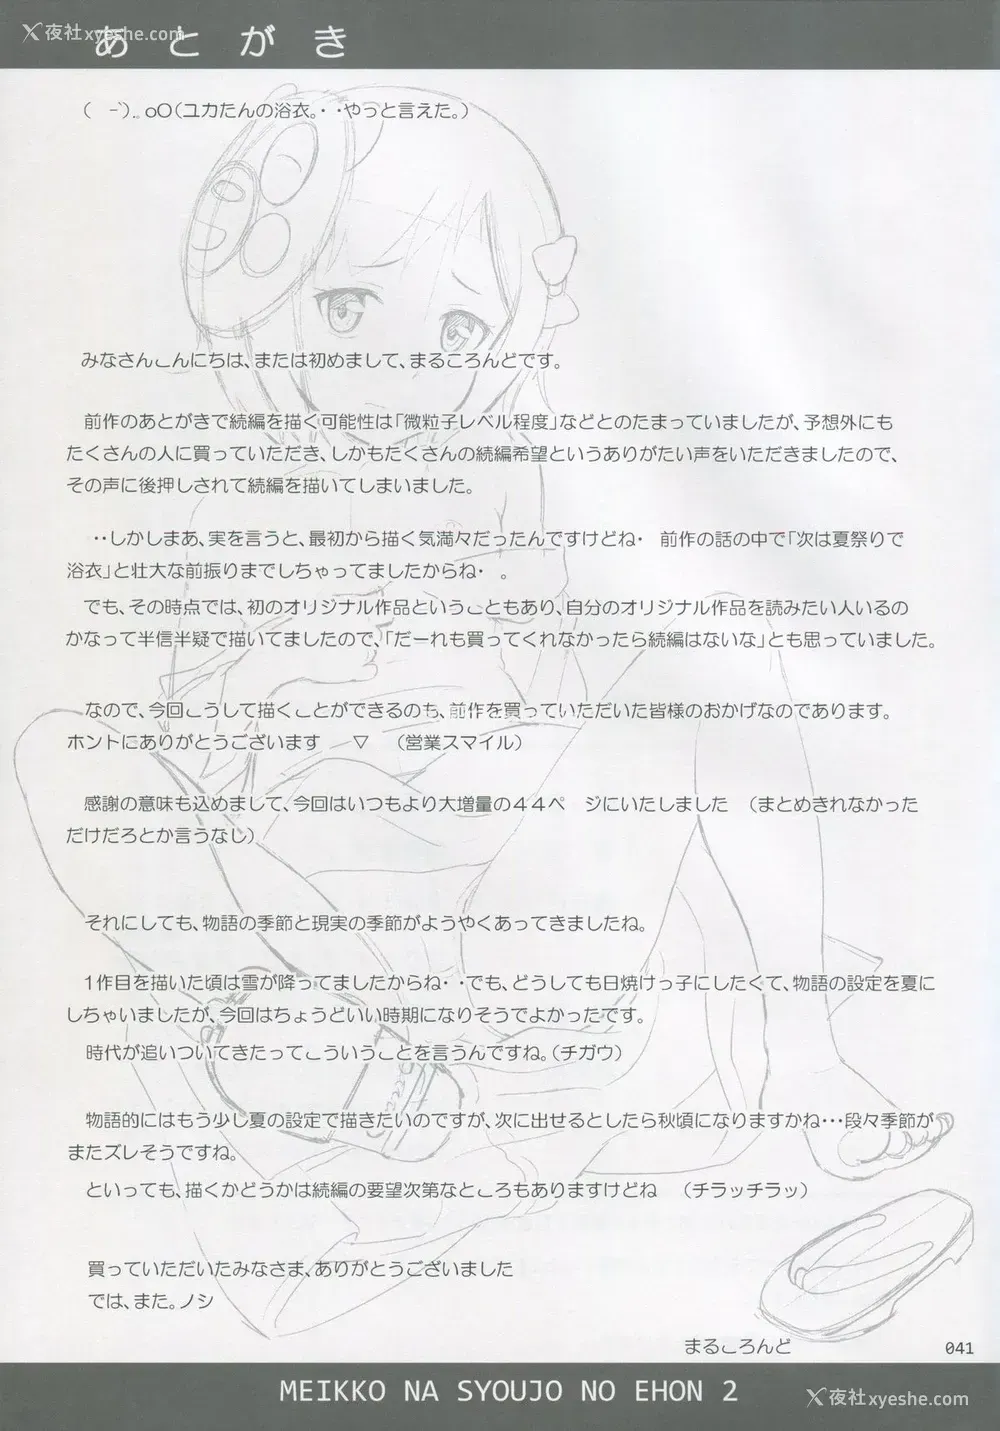 夜社xyeshe.com
あとがき
( ｰ̀).。oO(ユカたんの浴衣。・・やっと言えた。)
みなさんこんにちは、または初めまして、まるころんどです。
前作のあとがきで続編を描く可能性は「微粒子レベル程度」などとのたまっていましたが、予想外にも
たくさんの人に買っていただき、しかもたくさんの続編希望というありがたい声をいただきましたので、
その声に後押しされて続編を描いてしまいました。
・・しかしまあ、実を言うと、最初から描く気満々だったんですけどね・ 前作の話の中で「次は夏祭りで
浴衣」と壮大な前振りまでしちゃってましたからね・ 。
でも、その時点では、初のオリジナル作品ということもあり、自分のオリジナル作品を読みたい人いるの
かなって半信半疑で描いてましたので、「だーれも買ってくれなかったら続編はないな」とも思っていました。
なので、今回こうして描くことができるのも、前作を買っていただいた皆様のおかげなのであります。
ホントにありがとうございます ▽ (営業スマイル)
感謝の意味も込めまして、今回はいつもより大増量の44ペ ジにいたしました (まとめきれなかった
だけだろとか言うなし)
それにしても、物語の季節と現実の季節がようやくあってきましたね。
1作目を描いた頃は雪が降ってましたからね・・でも、どうしても日焼けっ子にしたくて、物語の設定を夏に
しちゃいましたが、今回はちょうどいい時期になりそうでよかったです。
時代が追いついてきたってこういうことを言うんですね。(チガウ)
物語的にはもう少し夏の設定で描きたいのですが、次に出せるとしたら秋頃になりますかね・・・段々季節が
またズレそうですね。
といっても、描くかどうかは続編の要望次第なところもありますけどね (チラッチラッ)
買っていただいたみなさま、ありがとうございました
では、また。ノシ
まるころんど
041
MEIKKO NA SYOUJO NO EHON 2
夜社xyeshe.com